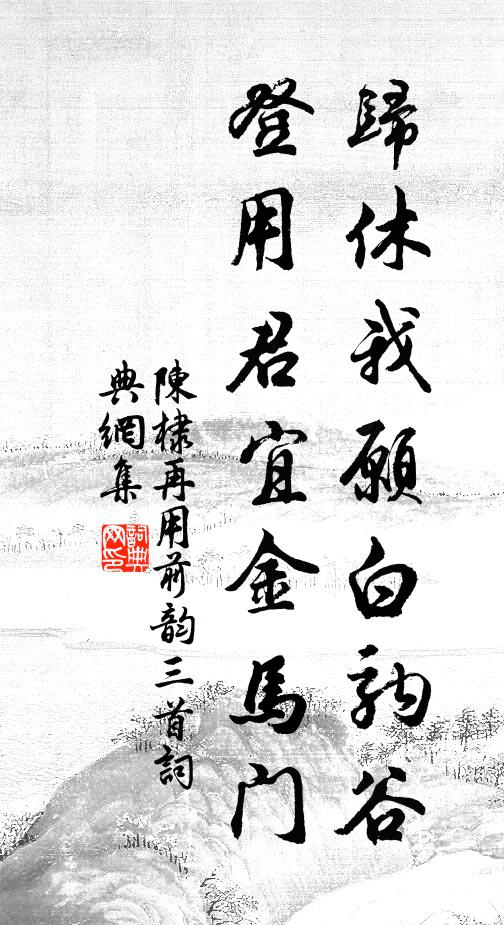 歸休我願白駒谷
登用君宜金馬門
陳棣再用前韵三首詞
典網集
詞典
网印